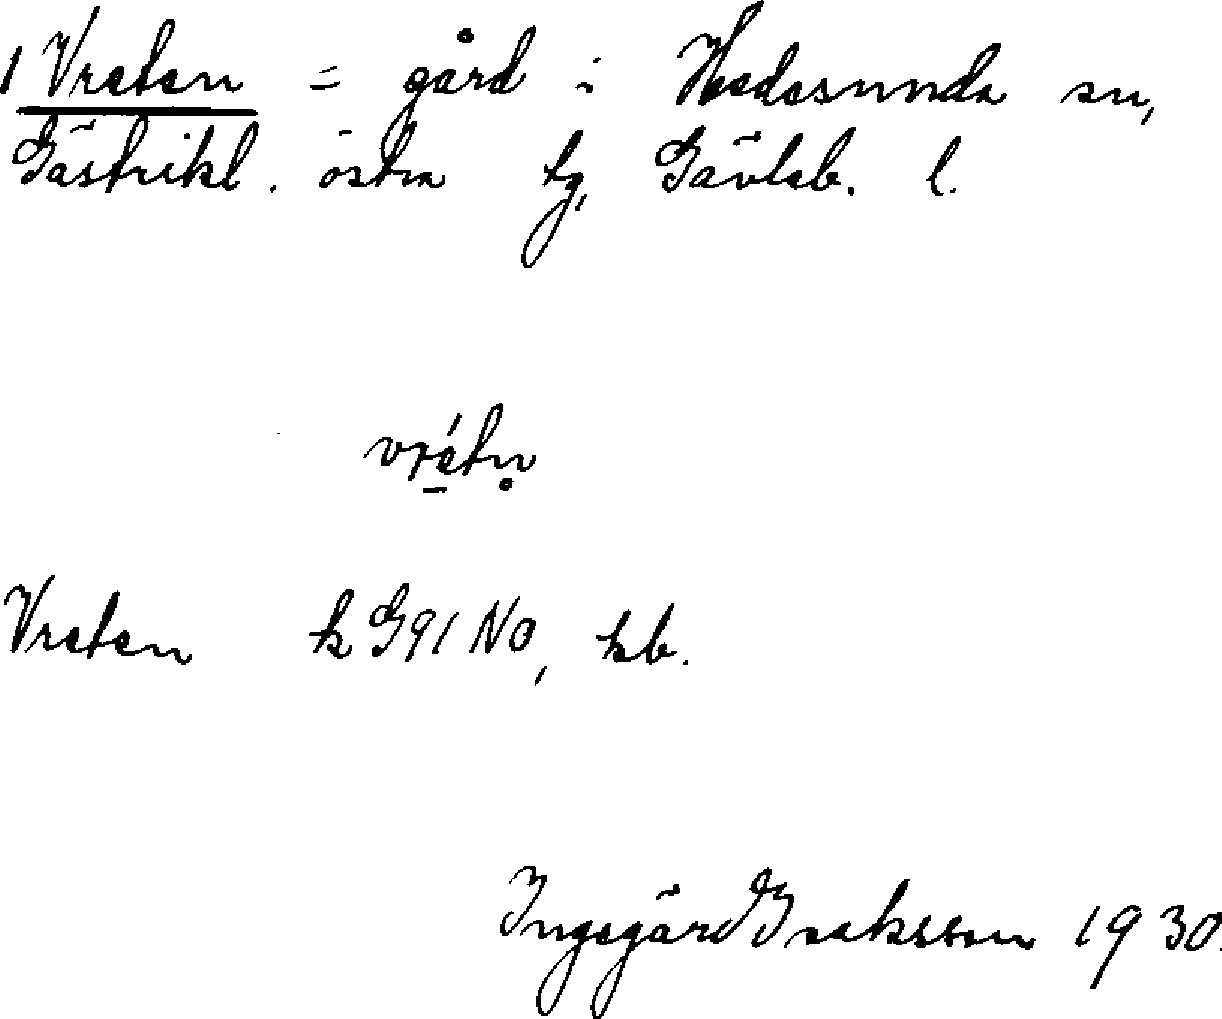 1 Vreten = gård i Hedesunda sn,
Gästrikl. östra tg, Gävleb. l.
vré̱tn̥
Vreten k G91 NO, kb.
Ingegärd Isaksson 1930.